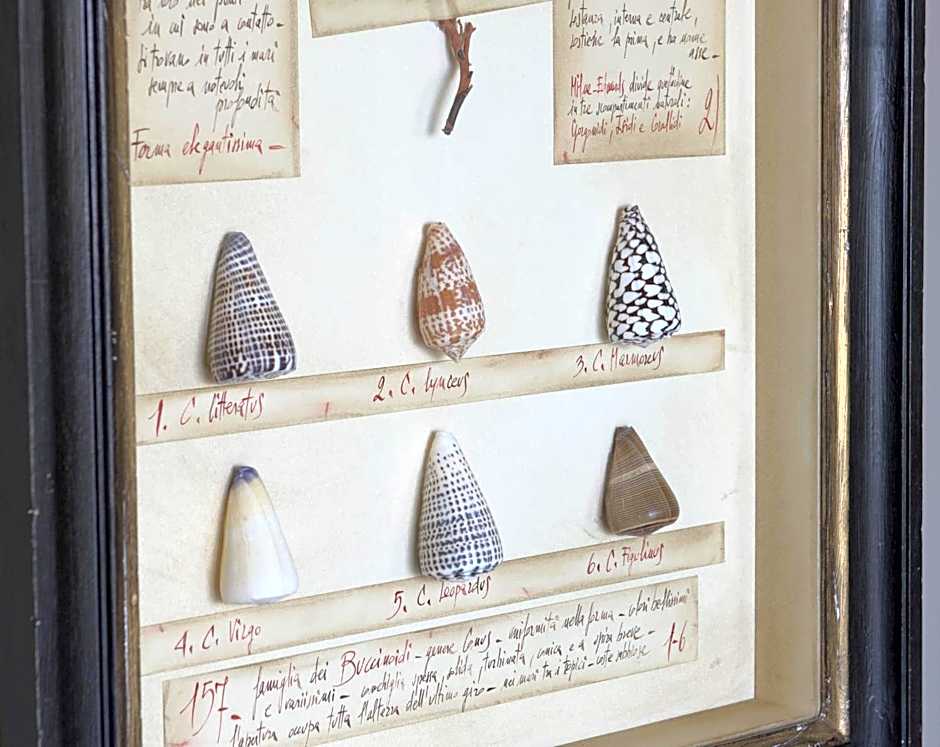 in cui sono a contatto-
si trovano in tutti i mari
sempre a notevoli
profondità
Forma elegantissima -
sostanza, interna e centrale,
sostiene la prima, e ha nome
asse-
Milne-Edwards divide quest'ordine
in tre scompartimenti naturali:
Gorgonidi, Isidi e Corallidi 2)
1. C. litteratus
2. C. lynceus
3. C. Marmoreus
4. C. Virgo
5. C. leopardus
6. C. Figulinus
157_ famiglia dei Buccinoidi - genere Conus - uniformità nella forma - colori bellissimi
e variissimi - conchiglia spessa, solida, turbinata, conica e a spira breve -
l'apertura occupa tutta l'altezza dell'ultimo giro - nei mari tra i tropici - coste sabbiose 1-6